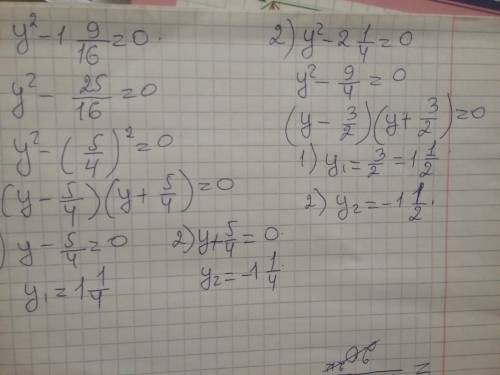 y² - 1 9/16 = 0.
y² - 25/16 = 0
y² - (5/4)² = 0
(y - 5/4)(y + 5/4) = 0
) y - 5/4 = 0 2) y + 5/4 = 0
y₁ = 1 1/4 y₂ = -1 1/4
2) y² - 2 1/4 = 0
y² - 9/4 = 0
(y - 3/2)(y + 3/2) = 0
1) y₁ = 3/2 = 1 1/2
2) y₂ = -1 1/2.
=